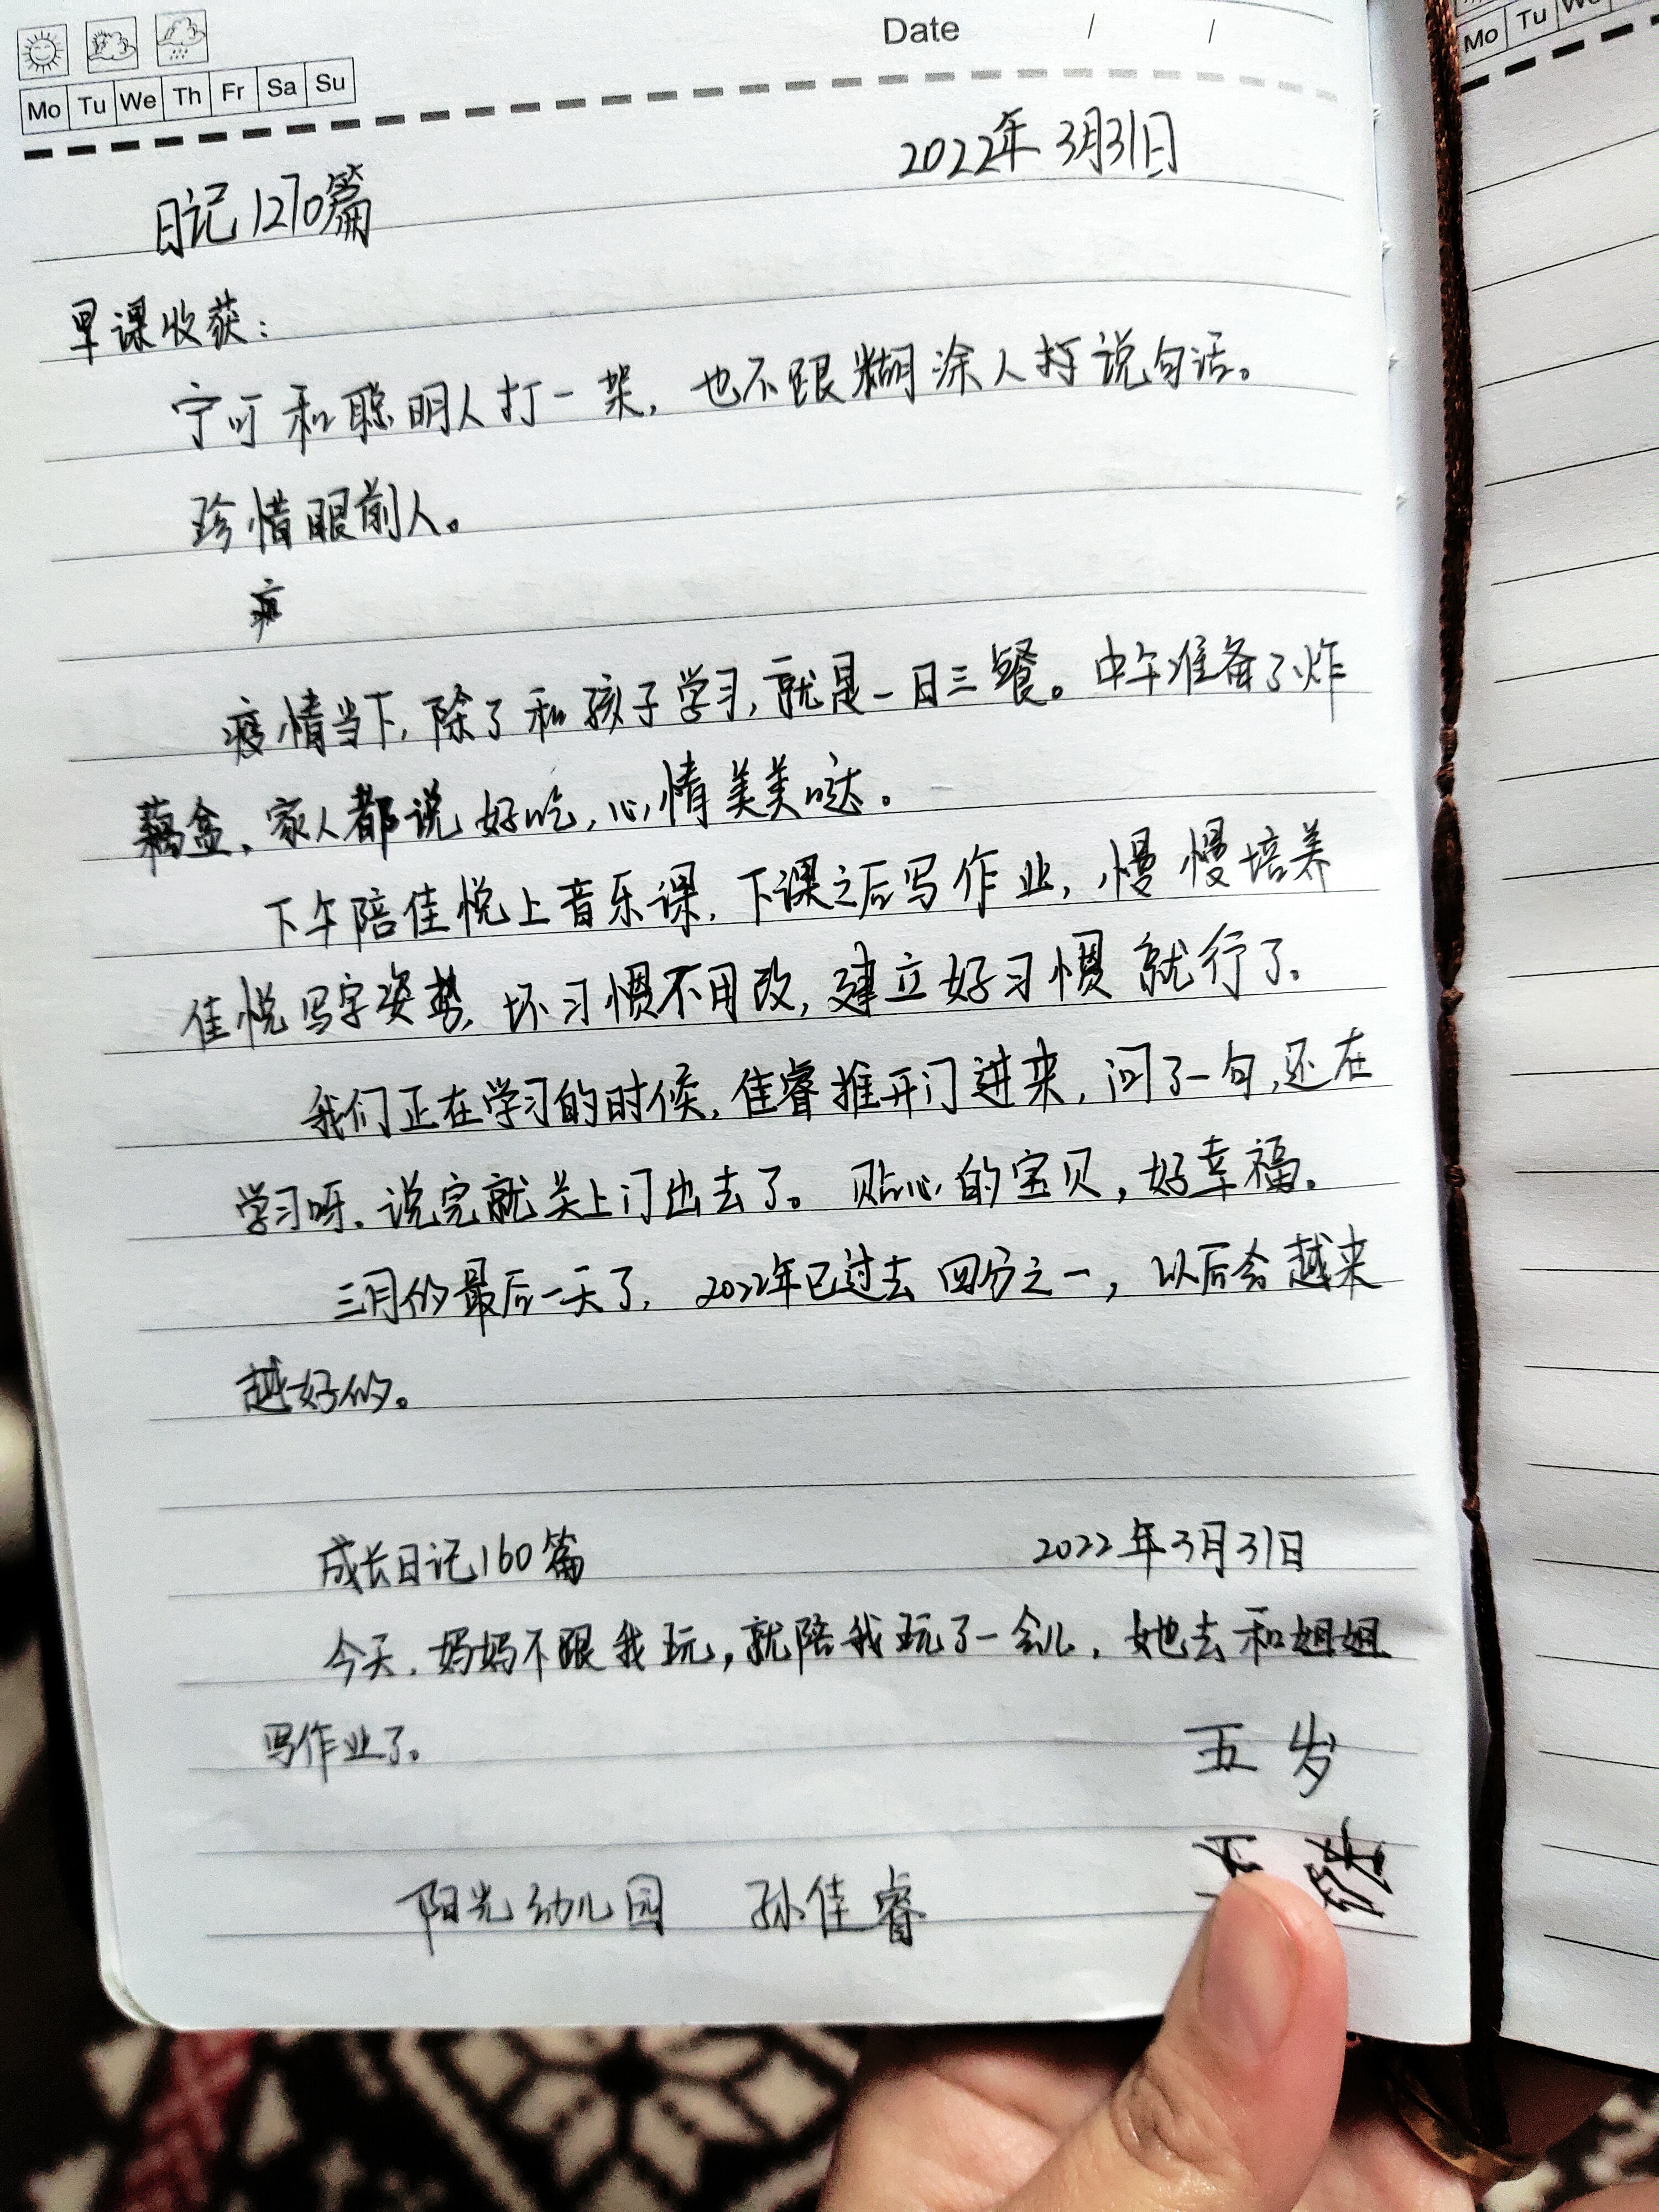 Date / /
Mo Tu We Th Fr Sa Su
Mo Tu We
2022年3月31日
日记1270篇
早课收获：
宁可和聪明人打一架，也不跟糊涂人打说句话。
珍惜眼前人。
疫情当下，除了和孩子学习，就是一日三餐。中午准备了炸
藕盒，家人都说好吃，心情美美哒。
下午陪佳悦上音乐课，下课之后写作业，慢慢培养
佳悦写字姿势，坏习惯不用改，建立好习惯就行了。
我们正在学习的时候，佳睿推开门进来，问了一句，还在
学习呀，说完就关上门出去了。贴心的宝贝，好幸福。
三月份最后一天了，2022年已过去四分之一，以后会越来
越好的。
成长日记160篇 2022年3月31日
今天，妈妈不跟我玩，就陪我玩了一会儿，她去和姐姐
写作业了。
五岁
阳光幼儿园 孙佳睿